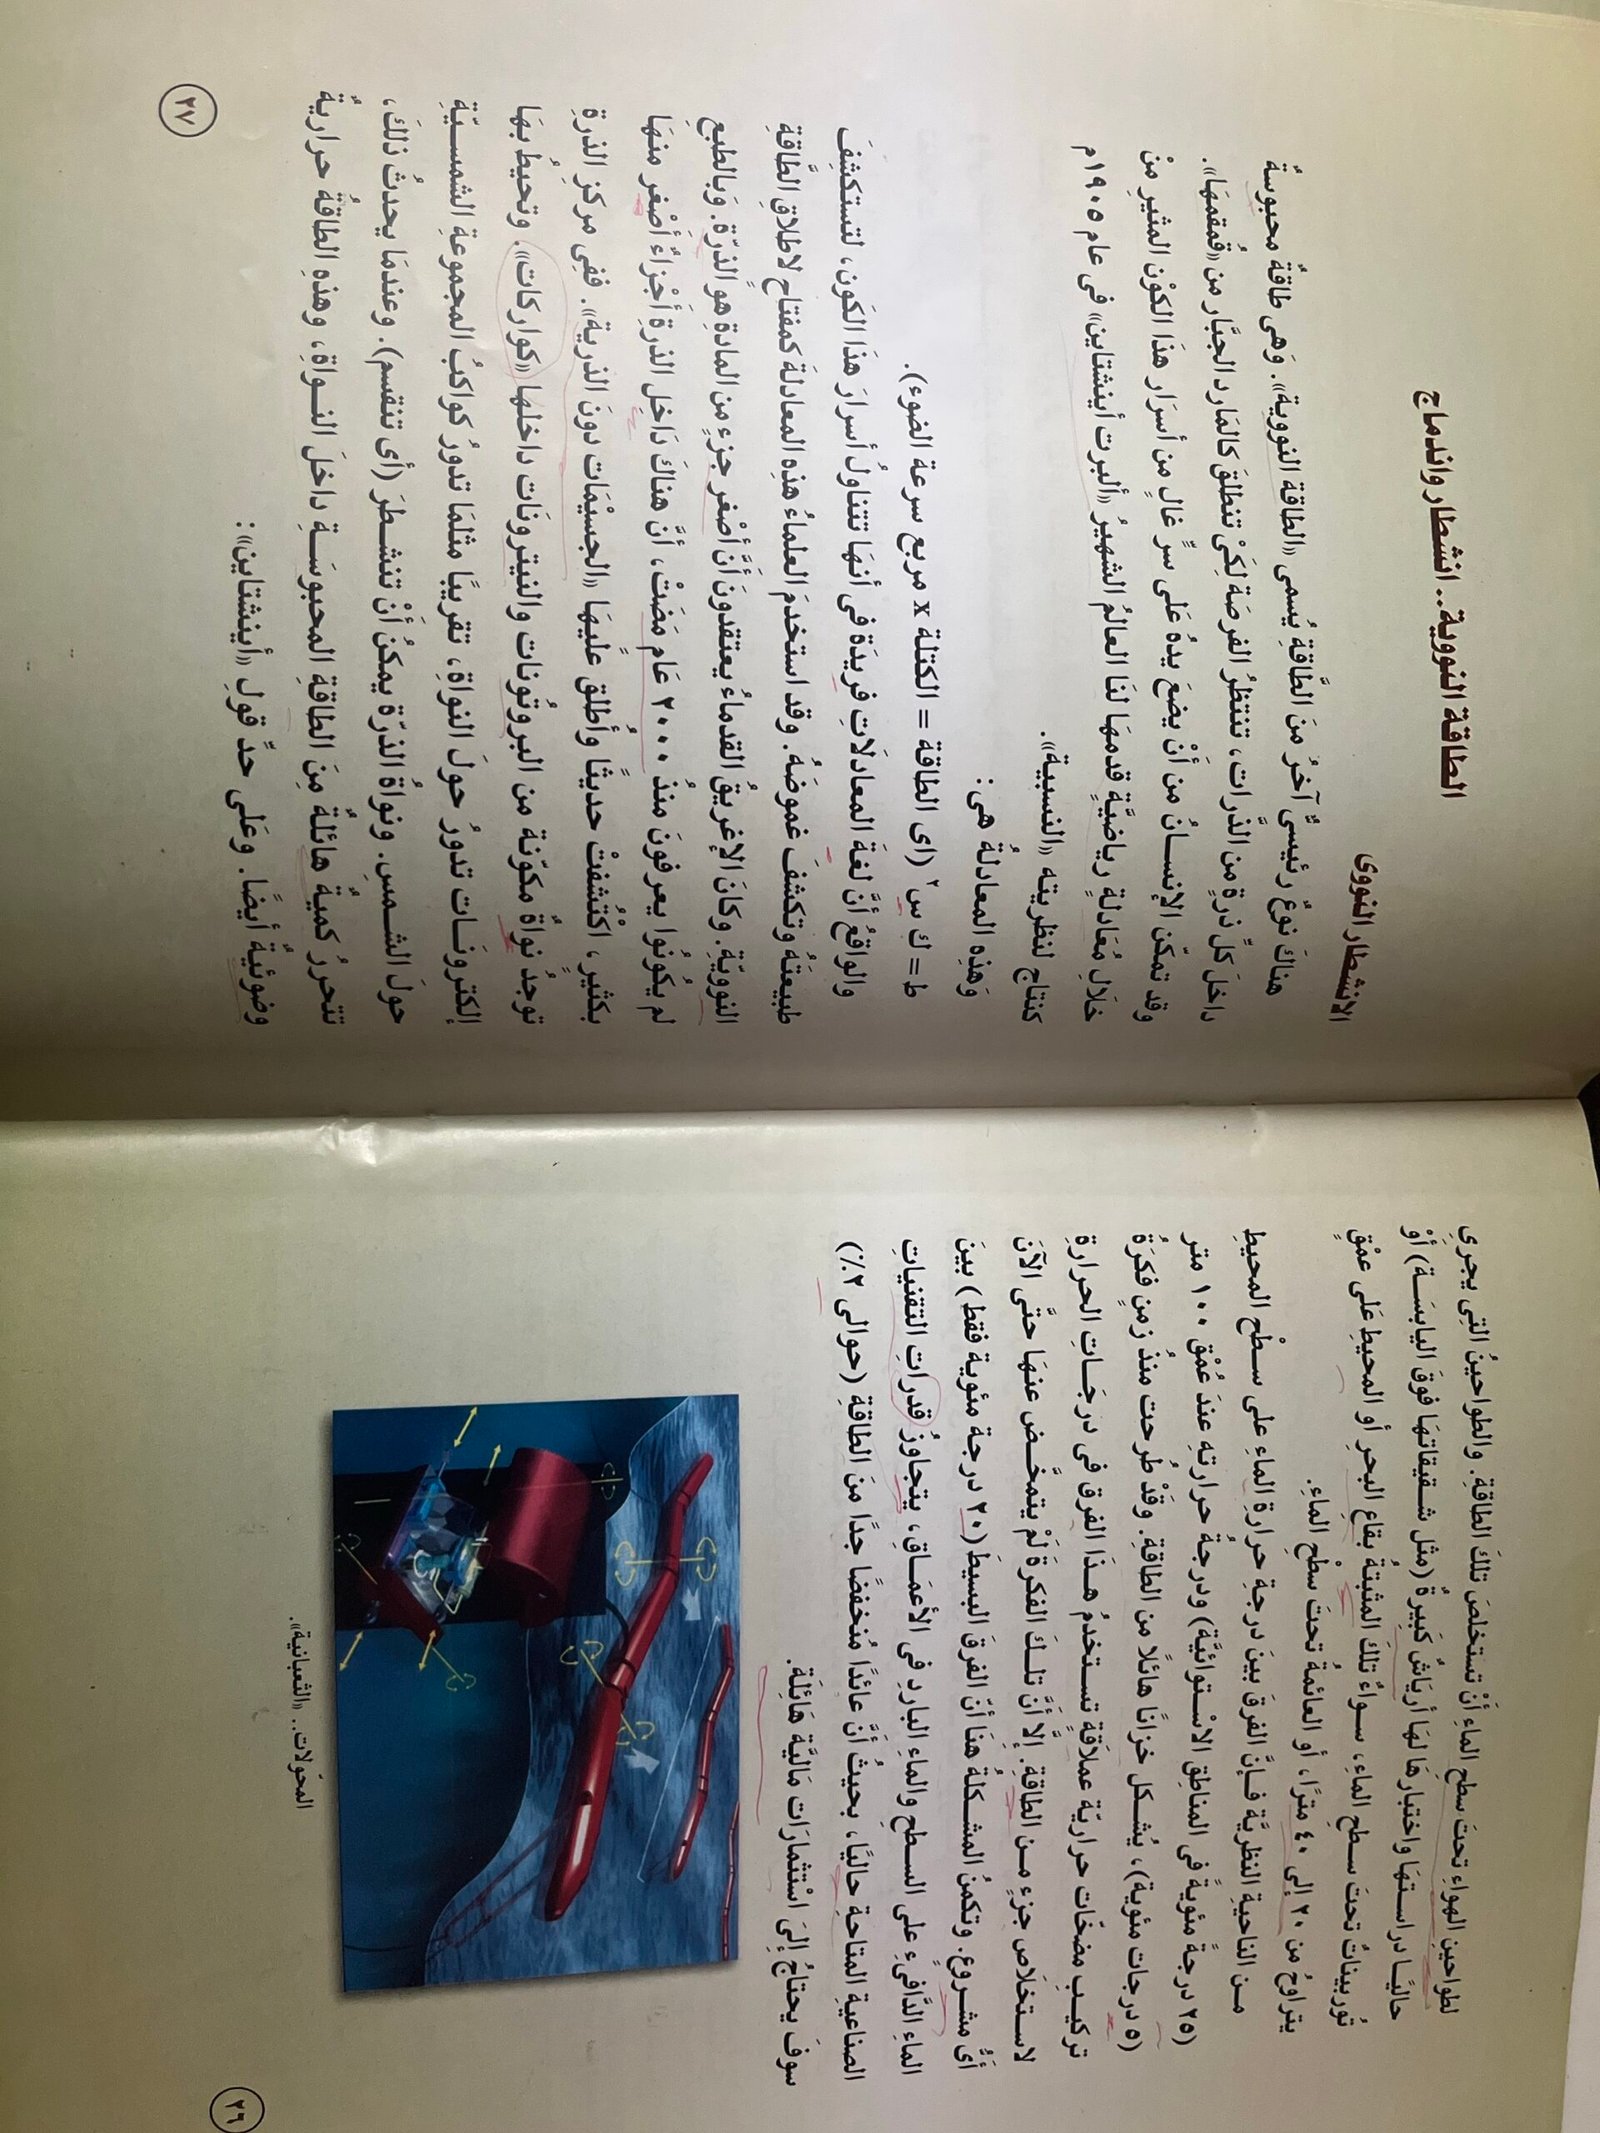 لطواحينِ الهواءِ تحتَ سطحِ الماءِ أَنْ تستخلِصَ تلكَ الطاقةِ. والطواحينُ التِي يجرِى
حاليًا دراستهَا واختبارهَا لهَا أرياشٌ كَبيرةٌ (مثل شقيقاتهَا فوقَ اليابسَة) أوْ
تُوربيناتٌ تحتَ سطحِ الماءِ، سواءٌ تلكَ المثبتةُ بقاعِ البحرِ أو المحيطِ عَلى عمْقٍ
يتراوحُ من ٢٠ إلى ٤٠ مترًا، أو العائمةُ تحتَ سطْحِ الماءِ.
من الناحيةِ النظريَّة فإنَّ الفرقَ بينَ درجةِ حرارةِ الماءِ على سطْحِ المحيطِ
(٢٥ درجةً مئويةً فى المناطِق الاسْتوائيَّة) ودرجةُ حرارتهِ عندَ عُمْق ١٠٠ متر
(٥ درجات مئوية)، يُشكل خزانًا هائلًا من الطاقةِ. وقَدْ طُرحت منذُ زمنٍ فكرَةُ
تركيبِ مضخّات حراريّة عملاَقةٍ تستخدمُ هذَا الفرق فى درجَاتِ الحرارةِ
لاستخلَاص جزءٍ من الطاقةِ. إلَّا أنَّ تلكَ الفكرةَ لَمْ يتمخَّض عنهَا حتَّى الآنَ
أىُّ مشروعٍ. وتكمنُ المشكلةُ هنَا أنّ الفرقَ البسيطَ (٢٠ درجة مئوية فقط) بينَ
الماءِ الدَّافىءِ على السطحِ والماءِ الباردِ فى الأعمَاقِ، يتجاوزُ قدراتِ التقنياتِ
الصناعيةِ المتاحةِ حاليًا، بحيثُ أنَّ عائدًا مُنخفضًا جدًا منَ الطاقةِ (حوالى ٢٪)
سوفَ يحتاجُ إلىَ اسْتثمارَات مَاليَّة هَائِلَة.
المحوّلات.. «الثعبانية».
٢٦
الطاقة النووية.. انشطار واندماج
الانشطار النووى
هناكَ نوعٌ رئيسىٌّ آخرُ منَ الطَّاقةِ يُسمى «الطاقة النووية». وَهى طاقةٌ محبوسةٌ
داخلَ كلِّ ذرةٍ من الذَّرات، تنتظرُ الفرصَة لكَىْ تنطلقَ كالمَارد الجبَّار من «قُمقمهَا».
وقد تمكّن الإنسانُ من أَنْ يضعَ يدهُ عَلى سرٍّ غَالٍ من أسرَار هذَا الكوْن المثير مِنْ
خلَالِ مُعَادلةٍ رياضيَّةٍ قدمهَا لنَا العالمُ الشهيرُ «ألبرت أينشتاين» فى عام ١٩٠٥م
كنتاج لنظريته «النسبية».
وَهذهِ المعادلةُ هى:
ط = ك س٢ (اى الطاقة = الكتلة x مربع سرعة الضوء).
والواقعُ أنَّ لغةَ المعادلَاتِ فريدَة فى أنهَا تتناولُ أسرارَ هذَا الكَون، لتستكشِفَ
طبيعتَهُ وتكشفَ غموضَهُ. وقد استخدمَ العلماءُ هذهِ المعادلَة كمفتاحٍ لاطلاقِ الطَّاقةِ
النوويّةِ. وكانَ الإغريقُ القدماءُ يعتقدونَ أَنَّ أصْغر جزءٍ من المادةِ هو الذرّة. وَبالطبعِ
لم يكُونُوا يعرفونَ منذُ ٢٠٠٠ عَام مَضَتْ، أنَّ هناكَ دَاخِل الذرةِ أجْزاءٌ أصْغر منهَا
بكثيرٍ، اكْتُشفتْ حديثًا وأُطلق عليهَا «الجسيْمَات دونَ الذرية». ففِى مركزِ الذرةِ
توجدُ نواةٌ مكوّنة من البروتُونات والنيترونَات داخلهَا «كواركات». وتحيطُ بهَا
إلكترونَات تدورُ حولَ النواةِ، تقريبًا مثلمَا تدورُ كواكبُ المجموعةِ الشمسيّةِ
حولَ الشمسِ. ونواةُ الذرّة يمكنُ أَنْ تنشطرَ (أى تنقسم). وعندمَا يحدثُ ذلكَ،
تتحررُ كميةٌ هائلةٌ مِنَ الطاقةِ المحبوسَةِ داخلَ النواةِ، وهذهِ الطاقةُ حراريةٌ
وضوئيةٌ أيضًا. وعَلى حدِّ قولِ «أينشتاين»:
٢٧